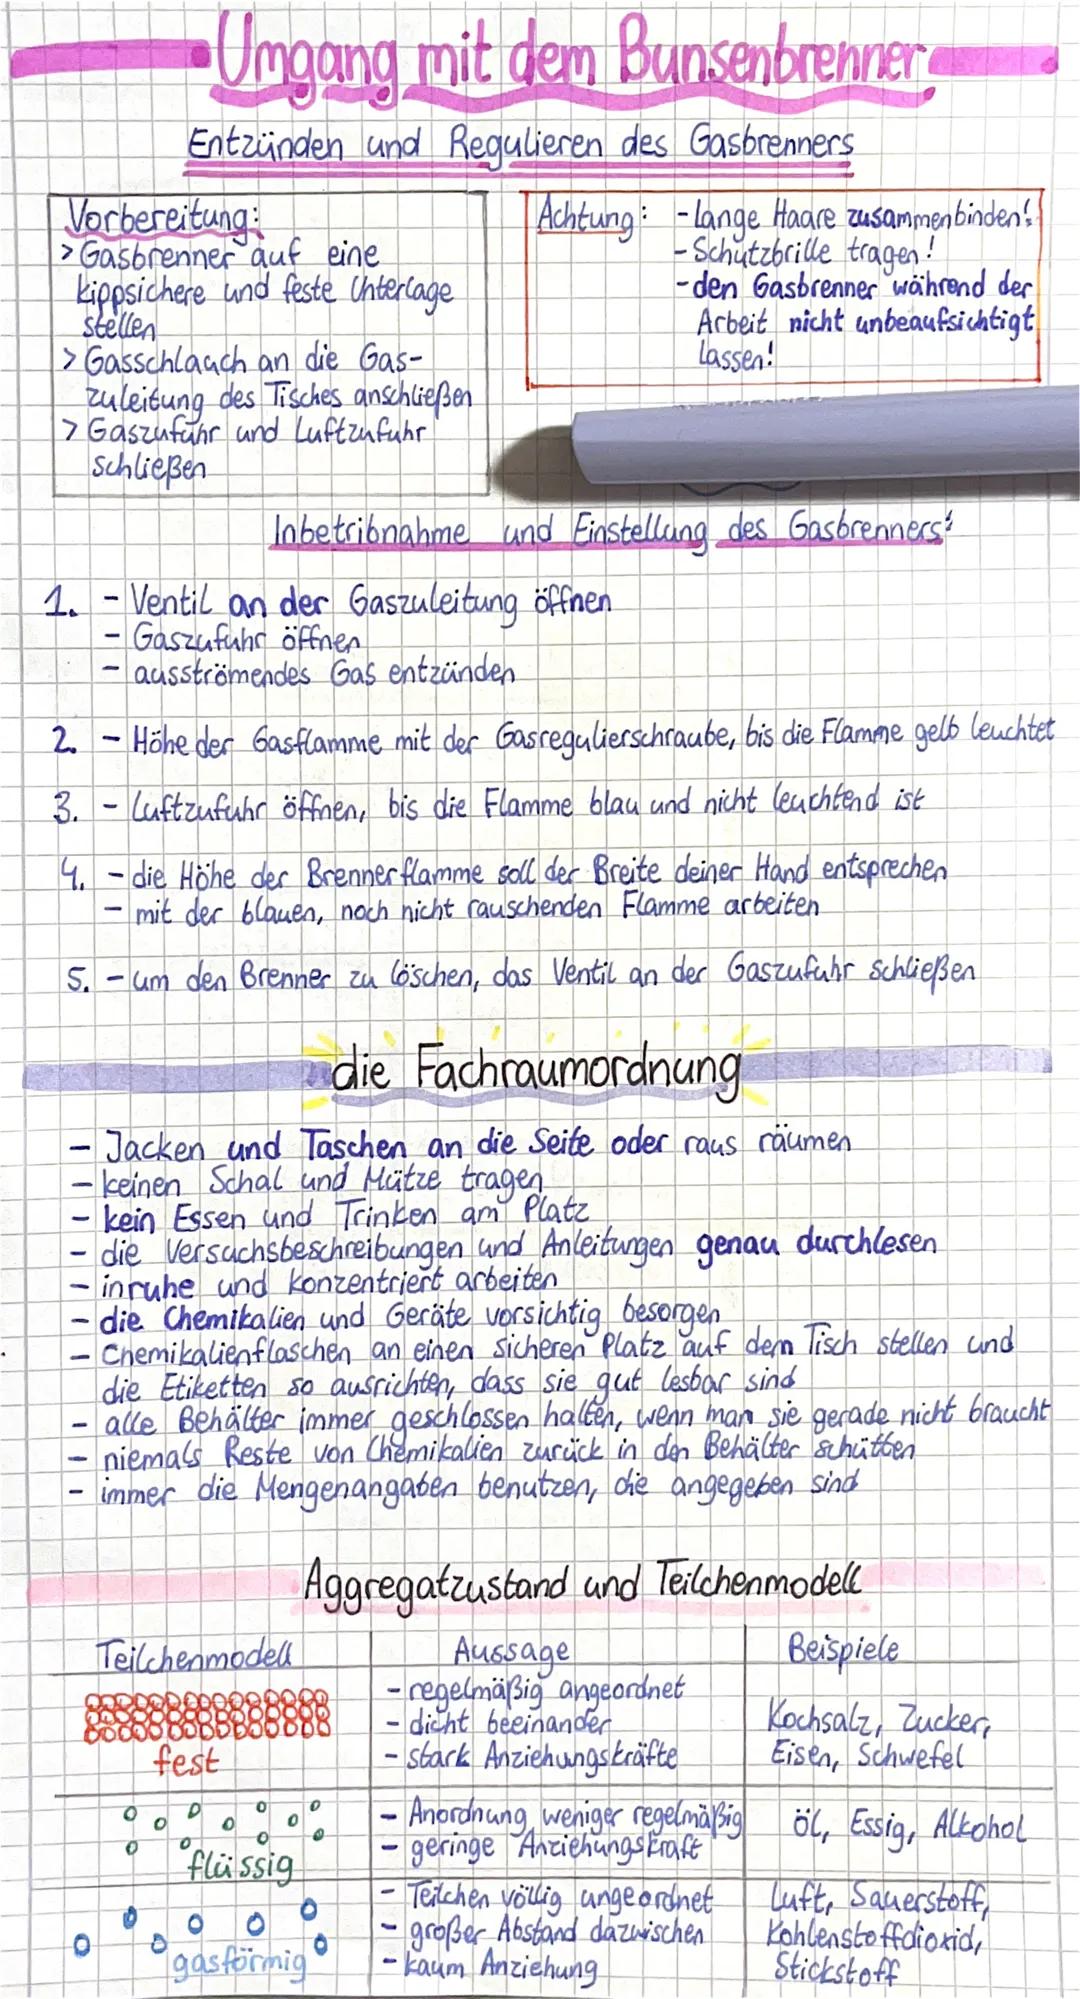 Umgang mit dem Bunsenbrenner
Entzünden und Regulieren des Gasbrenners
Vorbereitung:
> Gasbrenner auf eine
kippsichere und feste Unterlage
stellen
> Gasschlauch an die Gas-
zuleitung des Tisches anschließen
> Gaszufuhr und Luftzufuhr
schließen
Achtung: - Lange Haare zusammenbinden!
- Schutzbrille tragen!
- den Gasbrenner während der
Arbeit nicht unbeaufsichtigt
lassen!
Inbetribnahme und Einstellung des Gasbrenners:
1. - Ventil an der Gaszuleitung öffnen
- Gaszufuhr öffnen
- ausströmendes Gas entzünden
2. - Höhe der Gasflamme mit der Gasregulierschraube, bis die Flamme gelb leuchtet
3. - Luftzufuhr öffnen, bis die Flamme blau und nicht leuchtend ist
4. - die Höhe der Brennerflamme soll der Breite deiner Hand entsprechen
- mit der blauen, noch nicht rauschenden Flamme arbeiten
5. - um den Brenner zu löschen, das Ventil an der Gaszufuhr schließen
die Fachraumordnung
- Jacken und Taschen an die Seite oder raus räumen
- keinen Schal und Mütze tragen
- kein Essen und Trinken am Platz
- die Versuchsbeschreibungen und Anleitungen genau durchlesen
- inruhe und konzentriert arbeiten
- die Chemikalien und Geräte vorsichtig besorgen
- Chemikalienflaschen an einen sicheren Platz auf dem Tisch stellen und
die Etiketten so ausrichten, dass sie gut lesbar sind
- alle Behälter immer geschlossen halten, wenn man sie gerade nicht braucht
- niemals Reste von Chemikalien zurück in den Behälter schütten
- immer die Mengenangaben benutzen, die angegeben sind
Aggregatzustand und Teilchenmodell
Teilchenmodell
Aussage
Beispiele
fest
- regelmäßig angeordnet
- dicht beeinander
- stark Anziehungskräfte
Kochsalz, Zucker,
Eisen, Schwefel
flüssig
- Anordnung weniger regelmäßig
- geringe Anziehungskraft
Öl, Essig, Alkohol
gasförmig
- Teilchen völlig ungeordnet
- großer Abstand dazwischen
- kaum Anziehung
Luft, Sauerstoff,
Kohlenstoffdioxid,
Stickstoff